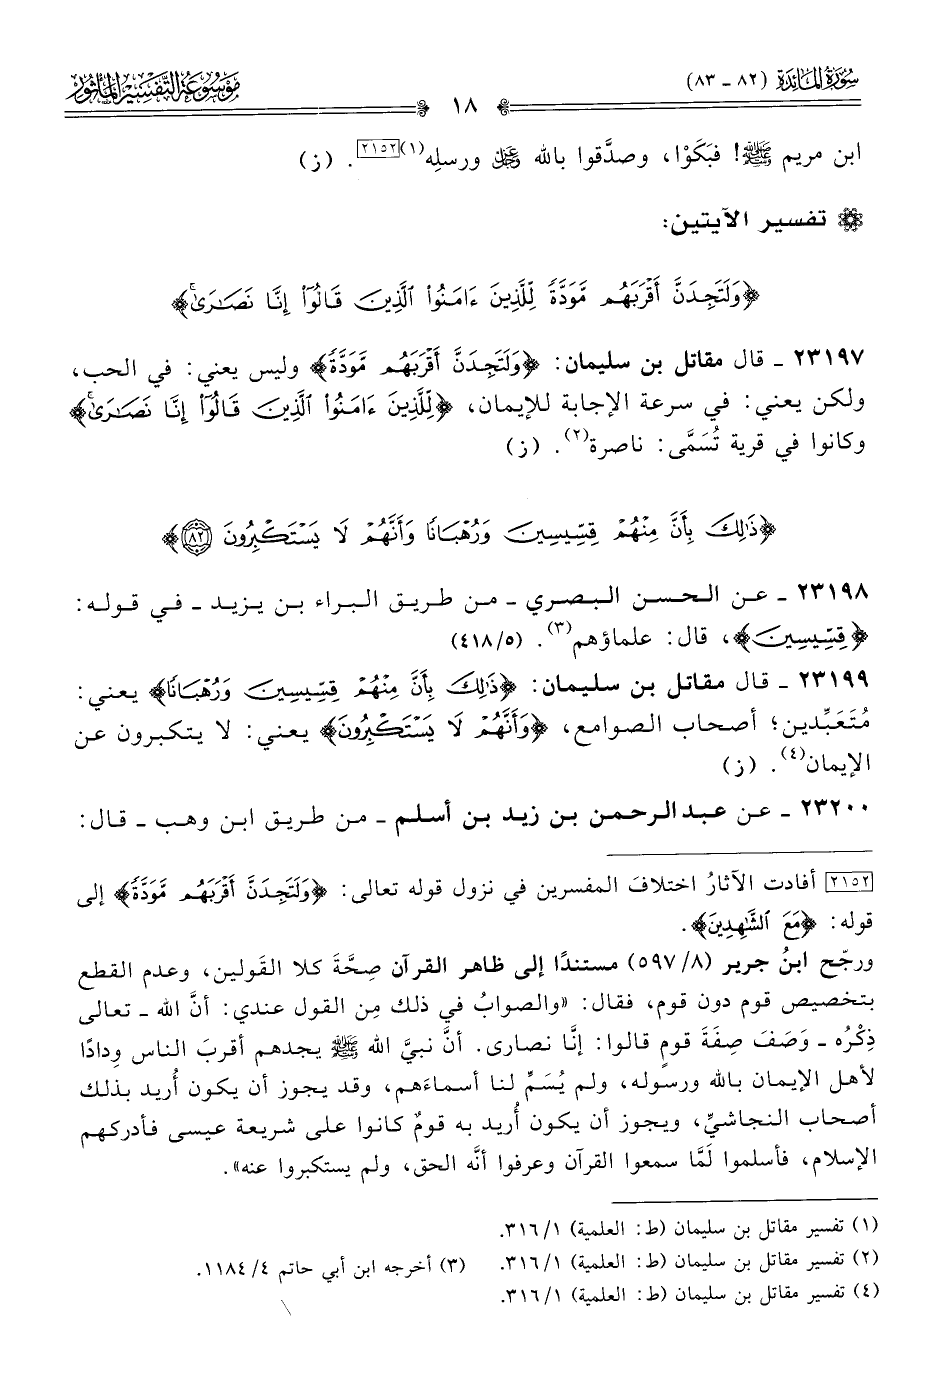 سورة المائدة (٨٢ - ٨٣)
١٨
موسوعة التفسير المأثور
ابن مريم ﷺ! فبَكَوْا، وصدَّقوا بالله ﷿ ورسلِه(١)[٢١٥٢]. (ز)
تفسير الآيتين:
﴿وَلَتَجِدَنَّ أَقْرَبَهُم مَّوَدَّةً لِّلَّذِينَ ءَامَنُوا۟ ٱلَّذِينَ قَالُوٓا۟ إِنَّا نَصَـٰرَىٰ ۚ﴾
٢٣١٩٧ - قال مقاتل بن سليمان: ﴿وَلَتَجِدَنَّ أَقْرَبَهُم مَّوَدَّةً﴾ وليس يعني: في الحب،
ولكن يعني: في سرعة الإجابة للإيمان، ﴿لِّلَّذِينَ ءَامَنُوا۟ ٱلَّذِينَ قَالُوٓا۟ إِنَّا نَصَـٰرَىٰ ۚ﴾
وكانوا في قرية تُسَمَّى: ناصرة(٢). (ز)
﴿ذَٰلِكَ بِأَنَّ مِنْهُمْ قِسِّيسِينَ وَرُهْبَانًا وَأَنَّهُمْ لَا يَسْتَكْبِرُونَ ٨٢﴾
٢٣١٩٨ - عن الحسن البصري - من طريق البراء بن يزيد - في قوله:
﴿قِسِّيسِينَ﴾، قال: علماؤهم(٣). (٤١٨/٥)
٢٣١٩٩ - قال مقاتل بن سليمان: ﴿ذَٰلِكَ بِأَنَّ مِنْهُمْ قِسِّيسِينَ وَرُهْبَانًا﴾ يعني:
مُتَعَبِّدين؛ أصحاب الصوامع، ﴿وَأَنَّهُمْ لَا يَسْتَكْبِرُونَ﴾ يعني: لا يتكبرون عن
الإيمان(٤). (ز)
٢٣٢٠٠ - عن عبد الرحمن بن زيد بن أسلم - من طريق ابن وهب - قال:
[٢١٥٢] أفادت الآثارُ اختلافَ المفسرين في نزول قوله تعالى: ﴿وَلَتَجِدَنَّ أَقْرَبَهُم مَّوَدَّةً﴾ إلى
قوله: ﴿مَعَ ٱلشَّـٰهِدِينَ﴾.
ورجّح ابنُ جرير (٥٩٧/٨) مستندًا إلى ظاهر القرآن صِحَّةَ كلا القَولين، وعدم القطع
بتخصيص قوم دون قوم، فقال: «والصوابُ في ذلك مِن القول عندي: أنَّ الله - تعالى
ذِكْرُه - وَصَفَ صِفَةَ قومٍ قالوا: إنَّا نصارى. أنَّ نبيَّ الله ﷺ يجدهم أقربَ الناس وِدادًا
لأهل الإيمان بالله ورسوله، ولم يُسَمِّ لنا أسماءَهم، وقد يجوز أن يكون أُريد بذلك
أصحاب النجاشيِّ، ويجوز أن يكون أُريد به قومٌ كانوا على شريعة عيسى فأدركهم
الإسلام، فأسلموا لَمَّا سمعوا القرآن وعرفوا أنَّه الحق، ولم يستكبروا عنه».
(١) تفسير مقاتل بن سليمان (ط: العلمية) ٣١٦/١.
(٢) تفسير مقاتل بن سليمان (ط: العلمية) ٣١٦/١. (٣) أخرجه ابن أبي حاتم ١١٨٤/٤.
(٤) تفسير مقاتل بن سليمان (ط: العلمية) ٣١٦/١.